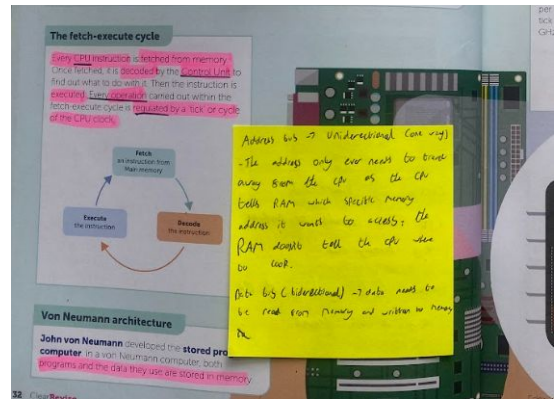 The fetch-execute cycle
Every CPU instruction is fetched from memory.
Once fetched, it is decoded by the Control Unit to
find out what to do with it. Then the instruction is
executed. Every operation carried out within the
fetch-execute cycle is regulated by a 'tick' or cycle
of the CPU clock.
Fetch
an instruction from
Main memory
Execute
the instruction
Decode
the instruction
Address bus → Unidirectional (one way)
-The address only ever needs to travel
away from the cpu as the cpu
tells RAM which specific memory
address it wants to access, the
RAM doesn't tell the cpu where
to look.
Data bus (bidirectional) → data needs to
be read from memory and written to memory
Von Neumann architecture
John von Neumann developed the stored pro
computer in a von Neumann computer, both
programs and the data they use are stored in memory
32 ClearRevise
per
tick
GHz